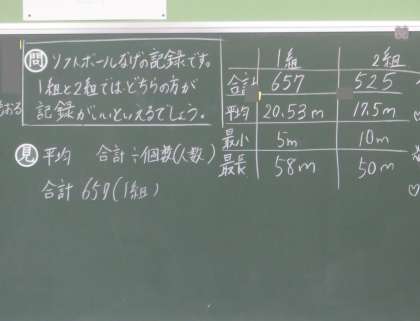 問 ソフトボールなげの記録です。
1組と2組では、どちらの方が
記録がいいといえるでしょう。
見 平均 合計÷個数(人数)
合計 659(1組)
1組 2組
合計 657 525
平均 20.53m 17.5m
最小 5m 10m
最長 58m 50m